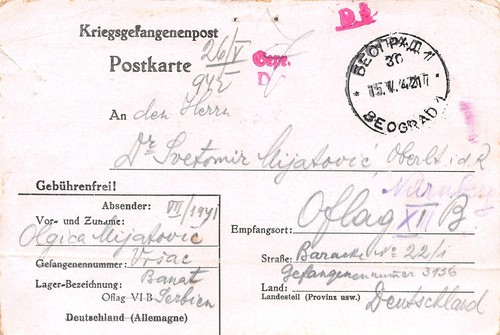 Kriegsgefangenenpost
Postkarte
26/V
942
Gepr.
D
БЕОГРАД 1
3C
15.V.42 17
BEOGRAD 1
An den Herrn
Dr Svetomir Mijatović Oberlt i.d. R
Nürnberg
Gebührenfrei!
Absender: VII/1941
Vor- und Zuname:
Olgica Mijatović
Gefangenennummer: Vršac
Lager-Bezeichnung: Banat
Oflag VI-B Serbien
Deutschland (Allemagne)
Oflag XIII B
Empfangsort:
Straße: Baracke No 22/1
Gefangenennummer 3136
Land:
Landesteil (Provinz usw.) Deutschland